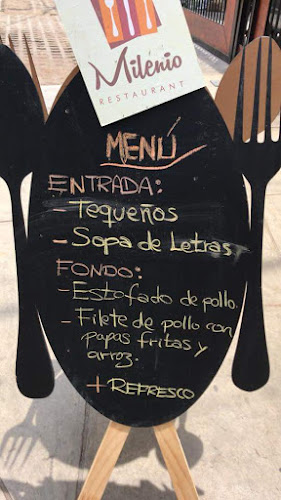 Milenio
RESTAURANT
MENÚ
ENTRADA:
- Tequeños
- Sopa de Letras
FONDO:
- Estofado de pollo.
- Filete de pollo con
papas fritas y
arroz.
+ REFRESCO